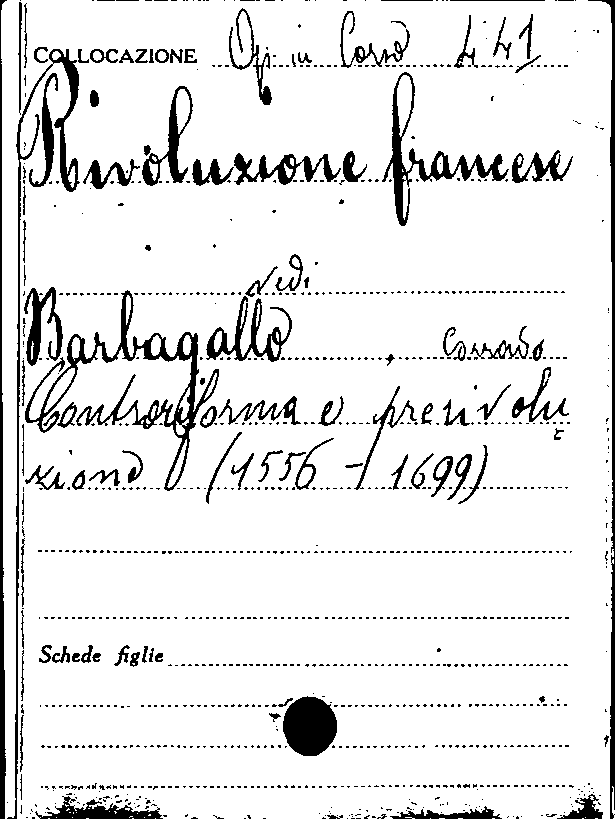 COLLOCAZIONE Op. in Corso 441
Rivoluzione francese
vedi
Barbagallo, Corrado
Controriforma e prerivolu
zione (1556 - 1699)
Schede figlie